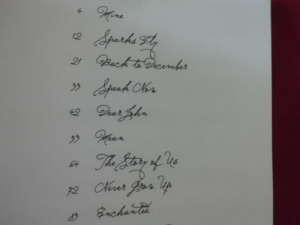 4 Mine
12 Sparks Fly
21 Back to December
33 Speak Now
42 Dear John
53 Mean
64 The Story of Us
72 Never Grow Up
83 Enchanted